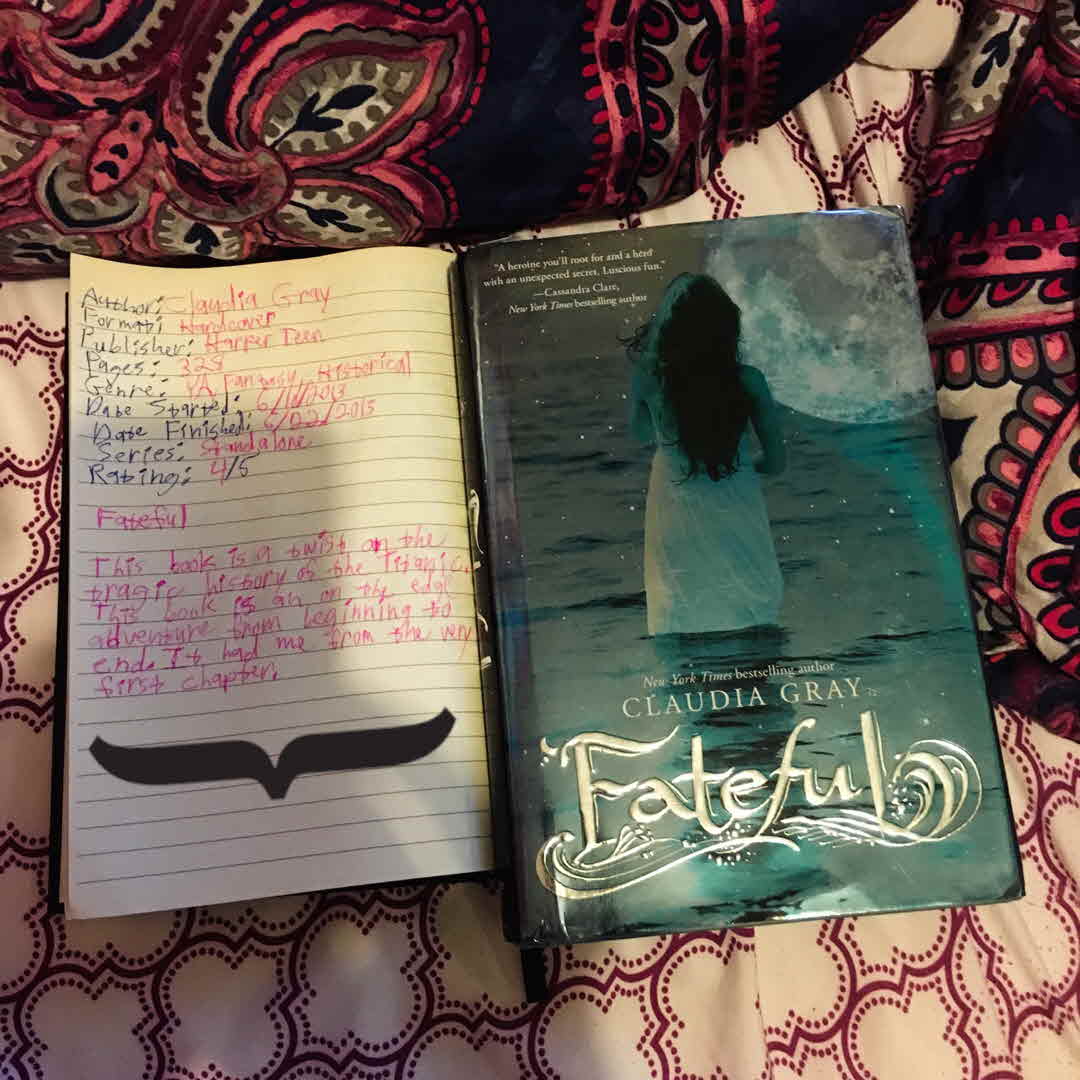 Author: Claudia Gray
Format: Hardcover
Publisher: Harper Teen
Pages: 328
Genre: YA Fantasy, Historical
Date Started: 6/
Date Finished: 6/22/2015
Series: Standalone
Rating: 4/5
Fateful
This book is a twist on the
tragic history of the Titanic.
This book is an on the edge
adventure from beginning to
end. It had me from the very
first chapter.
"A heroine you'll root for and a hero
with an unexpected secret. Luscious fun."
—Cassandra Clare,
New York Times bestselling author
New York Times bestselling author
CLAUDIA GRAY
Fateful